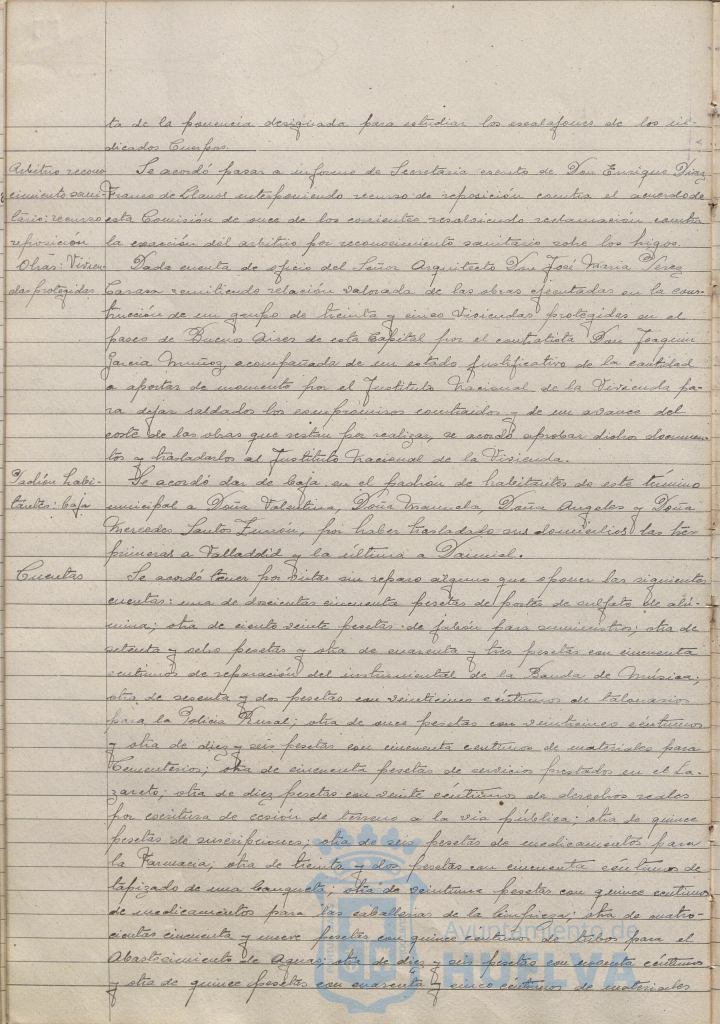 ta de la ponencia designada para estudiar los escalafones de los in-
dicados Cuerpos.
Arbitrio recono
cimiento sani-
tario: recurso
reposición
Se acordó pasar a informe de Secretaría escrito de Don Enrique Díaz
Franco de Llanos interponiendo recurso de reposición contra el acuerdo de
esta Comisión de once de los corrientes resolviendo reclamación contra
la exacción del arbitrio por reconocimiento sanitario sobre los higos.
Obras: Vivien-
das protegidas
Dada cuenta de oficio del Señor Arquitecto Don José María Pérez
Carasa remitiendo relación valorada de las obras ejecutadas en la cons-
trucción de un grupo de treinta y cinco Viviendas protegidas en el
paseo de Buenos Aires de esta Capital por el contratista Don Joaquín
García Muñoz, acompañada de un estado justificativo de la cantidad
a aportar de momento por el Instituto Nacional de la Vivienda pa-
ra dejar saldados los compromisos contraidos y de un avance del
coste de las obras que restan por realizar, se acordó aprobar dichos documen-
tos y trasladarlos al Instituto Nacional de la Vivienda.
Padrón habi-
tantes: baja
Se acordó dar de baja en el padrón de habitantes de este término
municipal a Doña Valentina, Doña Manuela, Doña Angeles y Doña
Mercedes Santos, por haber trasladado sus domicilios las tres
primeras a Valladolid y la última a Daimiel.
Cuentas
Se acordó tener por vistas sin reparo alguno que oponer las siguientes
cuentas: una de doscientas cincuenta pesetas de portes de sulfato de alú-
mina; otra de ciento veinte pesetas de jabón para suministros; otra de
setenta y ocho pesetas y otra de cuarenta y tres pesetas con cincuenta
céntimos de reparación del instrumental de la Banda de Música;
otra de sesenta y dos pesetas con veinticinco céntimos de talonarios
para la Policía Rural; otra de once pesetas con veinticinco céntimos
y otra de diez y seis pesetas con cincuenta céntimos de materiales para
Cementerios; otra de cincuenta pesetas de servicios prestados en el La-
zareto; otra de diez pesetas con veinte céntimos de derechos reales
por escritura de cesión de terreno a la vía pública; otra de quince
pesetas de suscripciones; otra de seis pesetas de medicamentos para
la Farmacia; otra de treinta y dos pesetas con cincuenta céntimos de
tapizado de una banqueta; otra de veintiuna pesetas con quince céntimos
de medicamentos para las caballerías de la limpieza; otra de cuatro-
cientas cincuenta y nueve pesetas con quince céntimos de tubos para el
Abastecimiento de Aguas; otra de diez y seis pesetas con noventa céntimos
y otra de quince pesetas con cuarenta y cinco céntimos de materiales
Ayuntamiento de
HUELVA